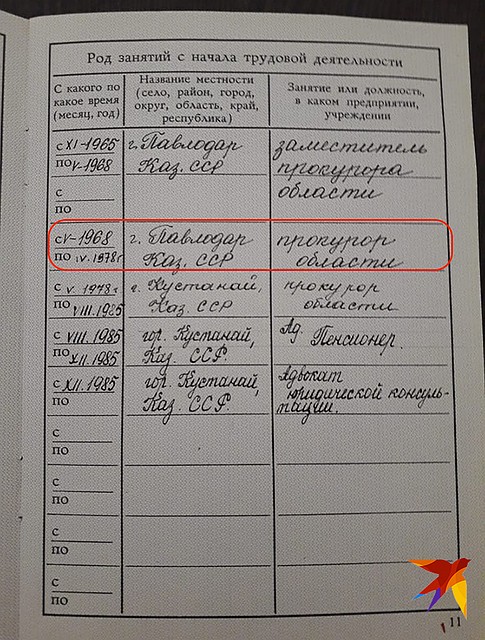 Род занятий с начала трудовой деятельности
С какого по какое время (месяц, год)
Название местности (село, район, город, округ, область, край, республика)
Занятие или должность, в каком предприятии, учреждении
с XI-1965 г. Павлодар заместитель
по V-1968 Каз. ССР прокурора
с области
по
с V-1968 г. Павлодар прокурор
по IV.1978 г Каз. ССР области
с V 1978 г г. Кустанай, прокурор
по VIII.1985 Каз. ССР области
с VIII.1985 гор. Кустанай, Пенсионер.
по XII.1985 Каз. ССР.
с XII.1985 гор. Кустанай, Адвокат
по Каз. ССР. юридической консуль-
тации.
с
по
с
по
с
по
с
по
11